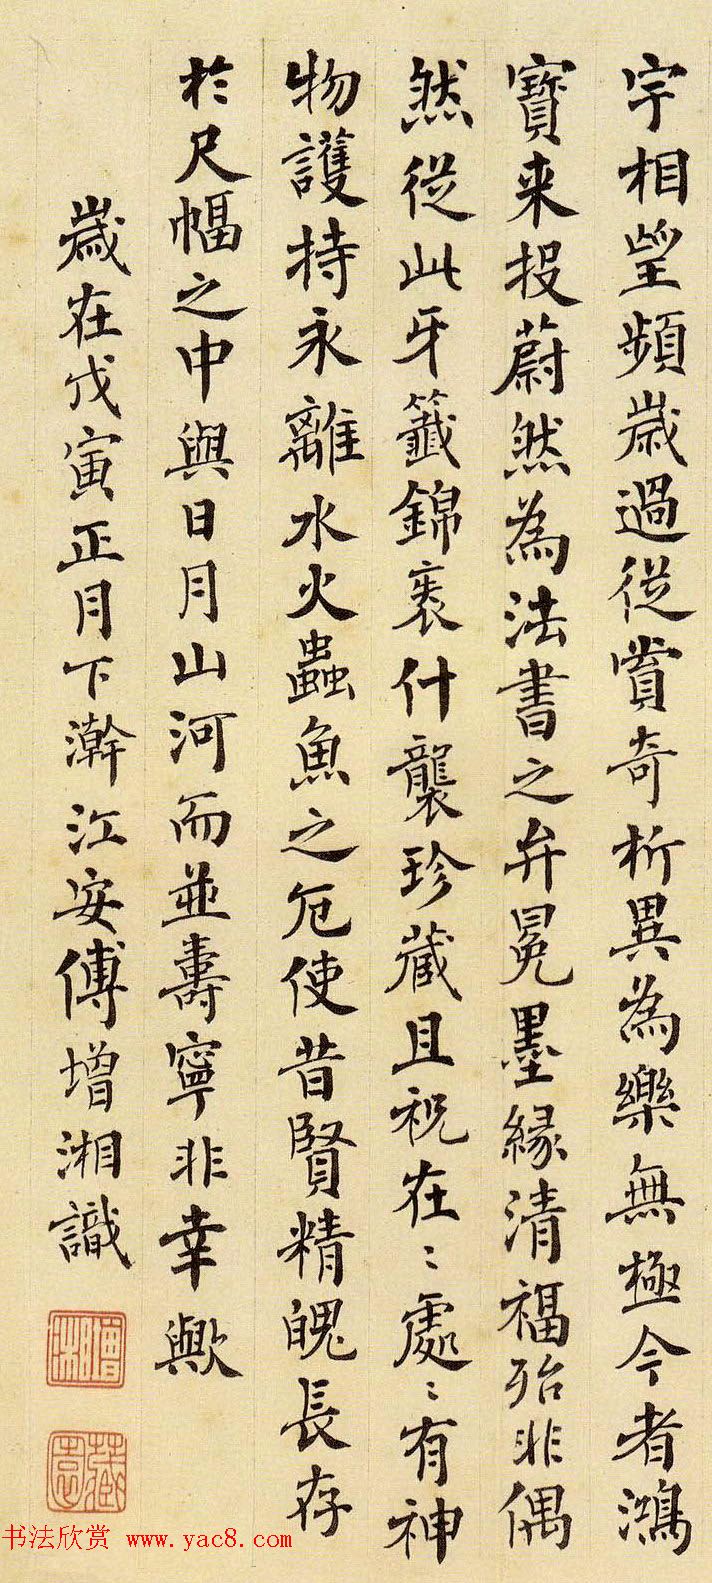 宇相望頻歲過從賞奇析異為樂無極今者鴻
寶来投蔚然為法書之弁冕墨緣清福殆非偶
然從此牙籤錦袠什襲珍藏且祝在〻處〻有神
物護持永離水火蟲魚之厄使昔賢精魄長存
於尺幅之中與日月山河而並壽寧非幸歟
歲在戊寅正月下澣江安傅增湘識
增湘
藏園
书法欣赏 www.yac8.com